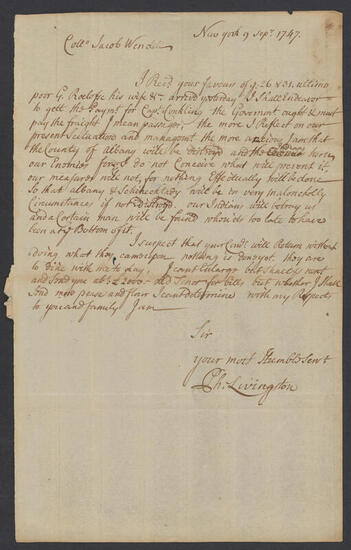 New york 9 Sepr. 1747.
Collo Jacob Wendell
I Recd your favours of 4. 26 & 31. ultimo
poor G. Roeloffe his wife &c arrived yesterday I Shall Endeavor
to gett the Paymt for Capt Conkling the Governmt ought & must
pay the freight I mean passenger. the more I Reflect on our
present Scituation and managemt the more anxious I am that
the County of Albany will be destroyd and the here
our Enemies forces do not Conceive what will prevent it,
our measures will not, for nothing Effectually will be done
So that albany & Schinechtady will be in very maloncholly
Circumstances if not destroyd. our Indians will betray us
and a Certain man will be found who'tis too late to have
been at Bottom of it.
I suspect that your Comrs will Return without
doing what they came upon nothing is done yet. they are
to dine with me to day, I cant Enlarge but Shall
and Send you ab £2000. old Tenor for bills, but whether I Shall
Send more pease and flour I cant determine with my Respects
to you and family I am
Sir
your most Humble Servt
Ph: Livingston